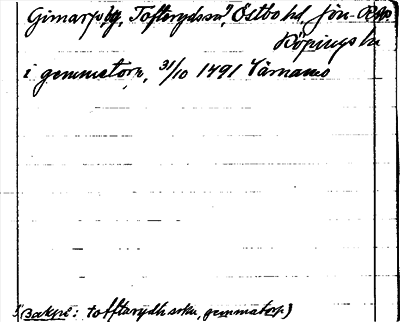 Gimarp, lg, Tofterydssn?, Östbo hd, Jön.
Köpings län
i gemmetorp, 31/10 1491 Värnamo
(Bakpå: tofftarydh sokn, gemmatorp)